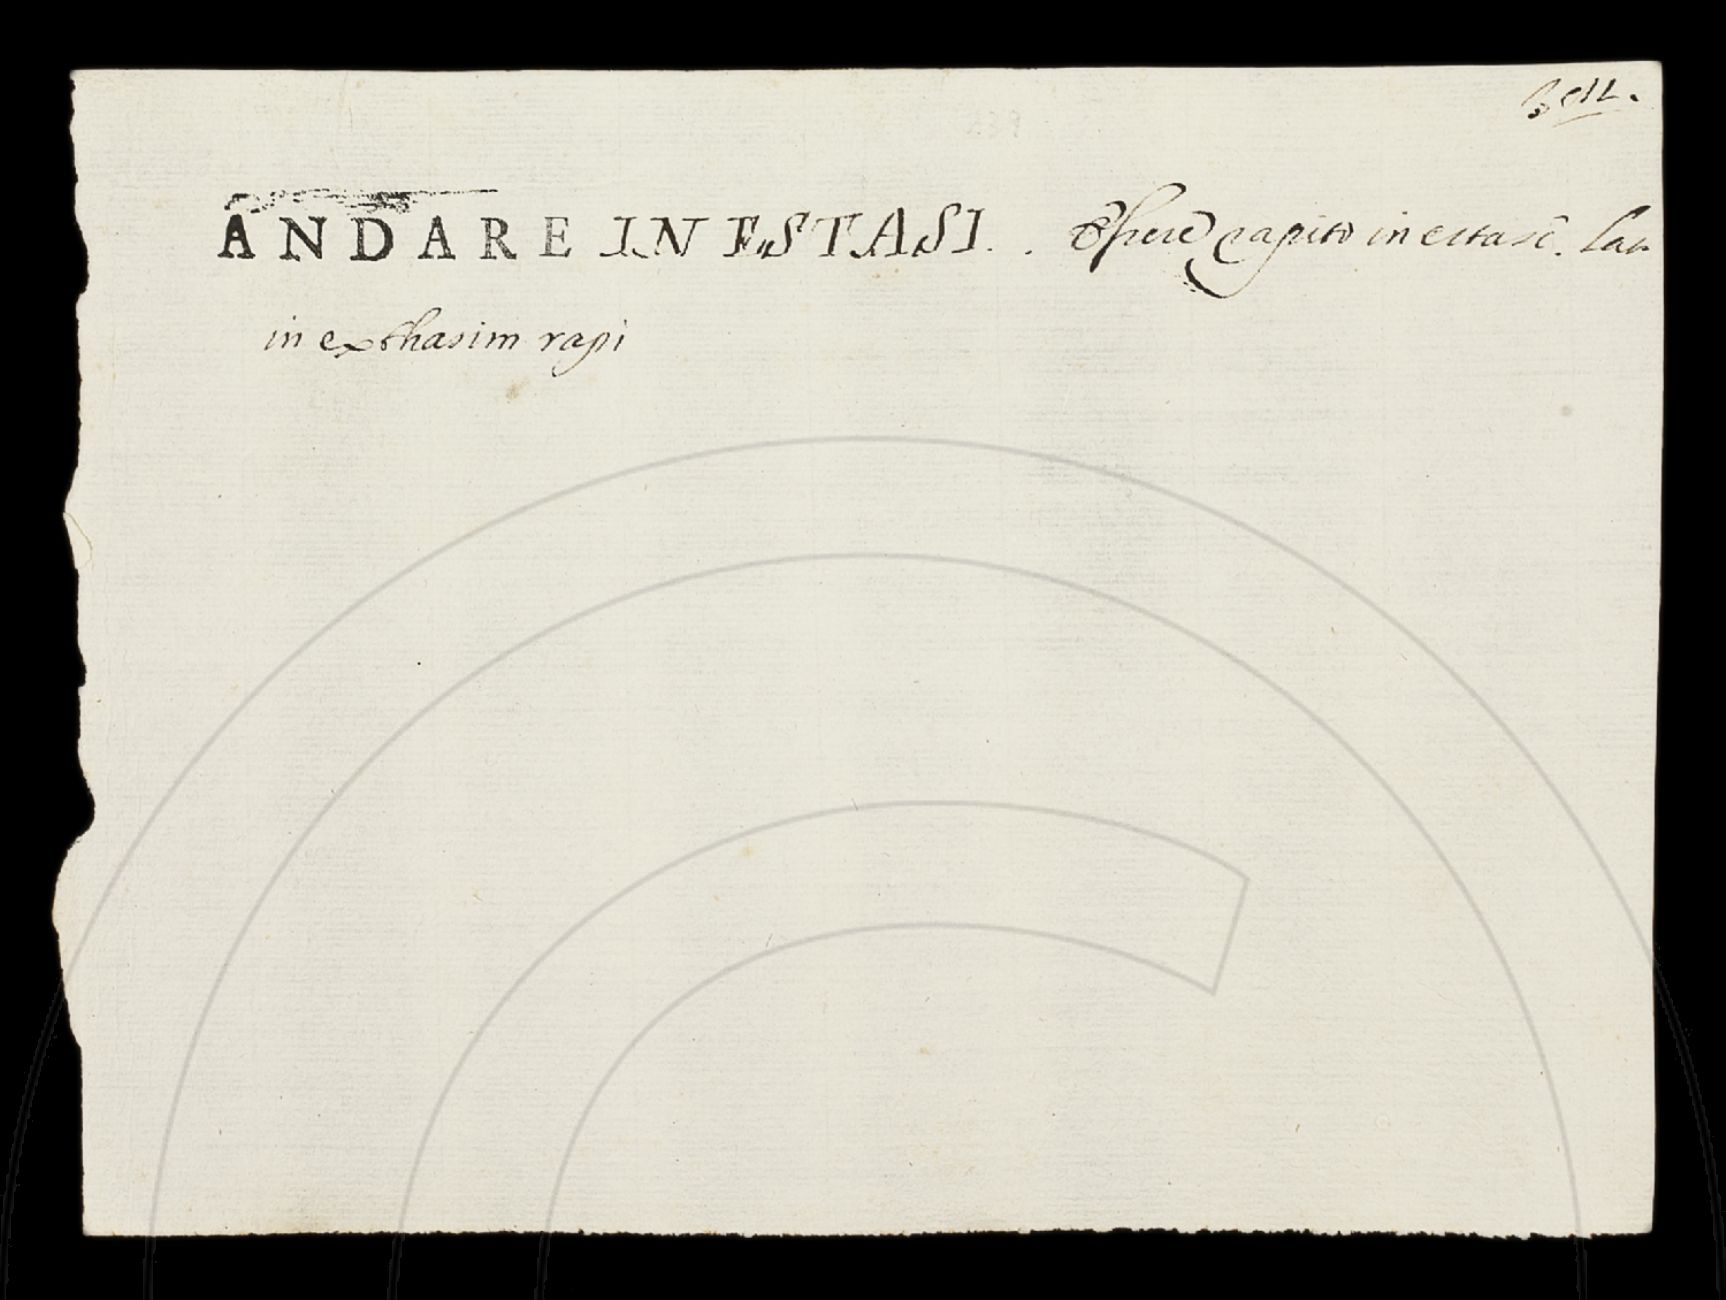 ANDARE IN ESTASI. . Essere rapito in estasi. Lat
in exthasim rapi